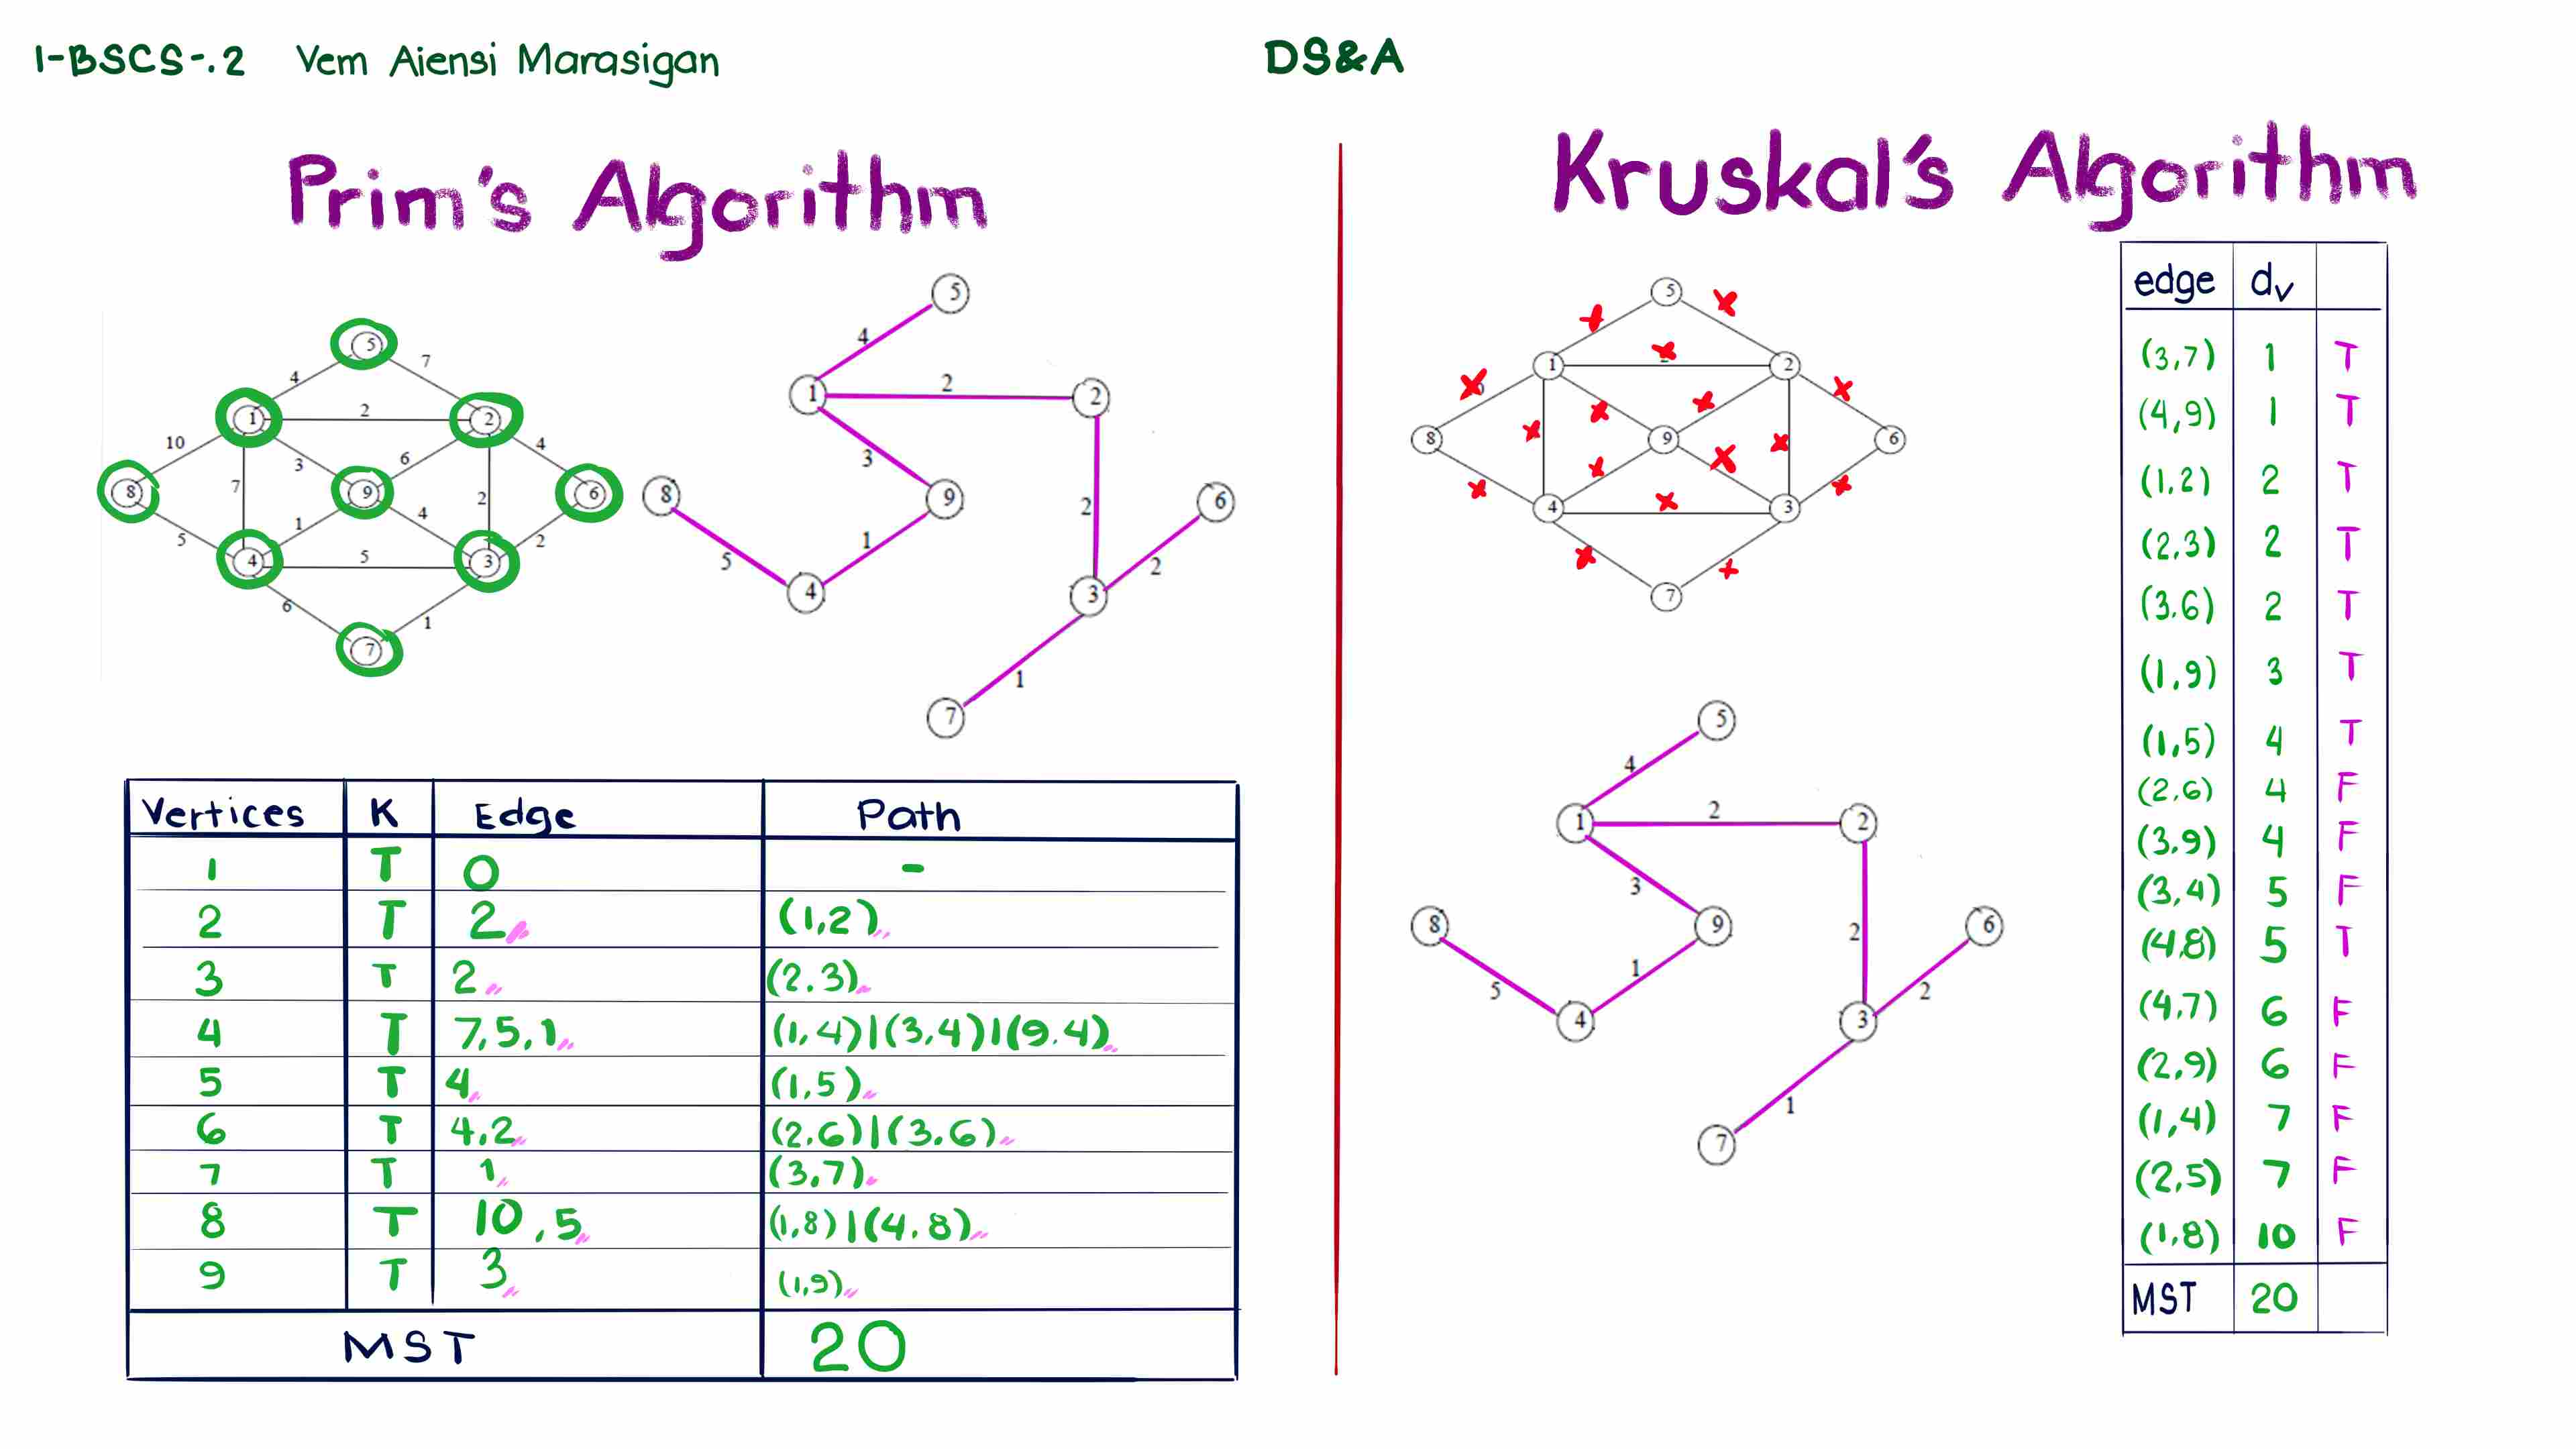 1-BSCS-.2 Vem Aiensi Marasigan
DS&A
Prim's Algorithm
5
4
7
1
2
2
10
3
6
4
8
7
9
2
6
5
1
4
2
4
5
3
6
1
7
5
4
1
2
2
3
8
9
2
6
5
1
2
4
3
1
7
Vertices K Edge Path
1 T 0 -
2 T 2 (1,2)
3 T 2 (2.3)
4 T 7,5,1 (1,4)|(3,4)|(9.4)
5 T 4 (1,5)
6 T 4,2 (2,6)|(3,6)
7 T 1 (3,7)
8 T 10,5 (1,8)|(4.8)
9 T 3 (1,9)
MST 20
Kruskal's Algorithm
5
1
2
8
9
6
4
3
7
5
4
1
2
2
3
8
9
2
6
5
1
2
4
3
1
7
edge dv
(3,7) 1 T
(4,9) 1 T
(1,2) 2 T
(2,3) 2 T
(3.6) 2 T
(1,9) 3 T
(1,5) 4 T
(2,6) 4 F
(3.9) 4 F
(3,4) 5 F
(4,8) 5 T
(4,7) 6 F
(2,9) 6 F
(1,4) 7 F
(2,5) 7 F
(1,8) 10 F
MST 20